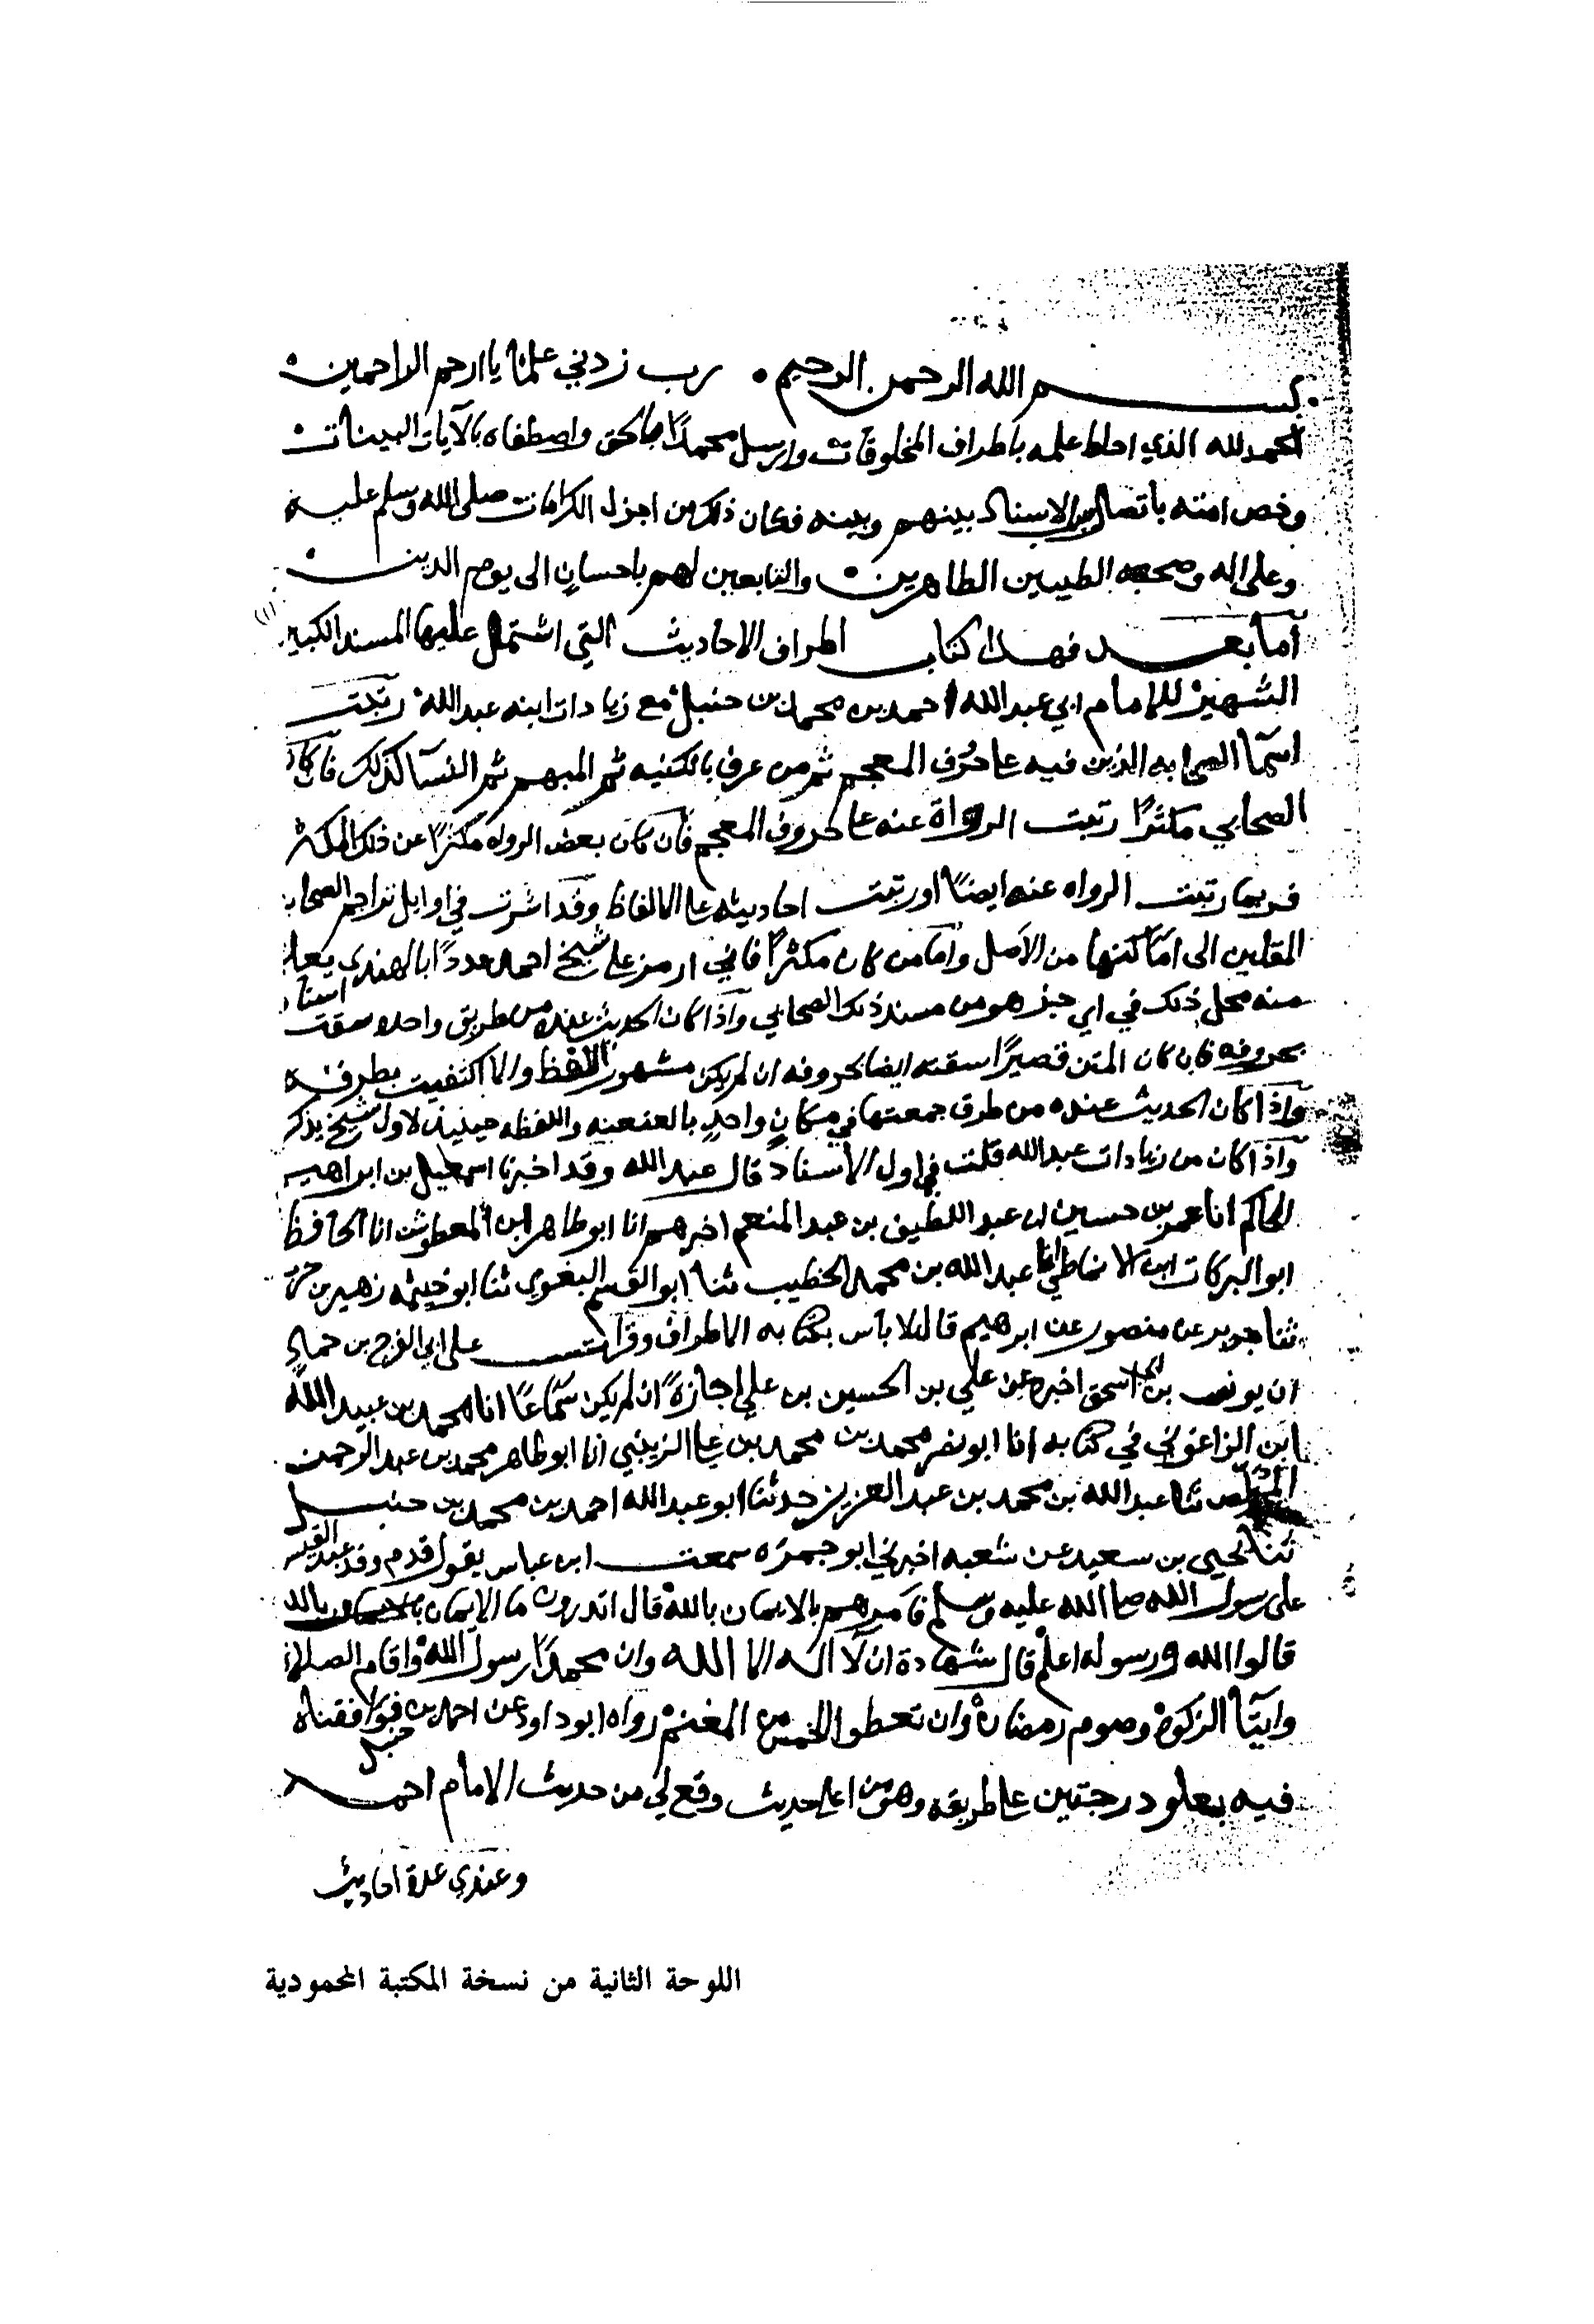 بسم الله الرحمن الرحيم • رب زدني علما يا ارحم الراحمين •
الحمد لله الذي احاط علمه باطراف المخلوقات وارسل محمدا بالحق واصطفاه بالآيات البينات •
وخص امته باتصال الاسناد بينهم وبينه فكان ذلك من اجزل الكرامات صلى الله وسلم عليه
وعلى اله وصحبه الطيبين الطاهرين • والتابعين لهم باحسان الى يوم الدين •
أما بعد فهذا كتاب اطراف الاحاديث التي اشتمل عليها المسند الكبير
الشهير للامام ابي عبد الله احمد بن محمد بن حنبل مع زيادات ابنه عبد الله رتبت
اسما الصحابه الذين فيه على حروف المعجم ثم من عرف بالكنيه ثم المبهم ثم النسا كذلك فان كان
الصحابي مكثرا رتبت الرواة عنه على حروف المعجم فان كان بعض الرواه مكثرا عن ذلك المكثر
فربما رتبت الرواه عنه ايضا او رتبت احاديثه على الالفاظ وقد اشرت في اوايل تراجم الصحابه
المقلين الى اماكنها من الاصل واما من كان مكثرا فاني ارمز على شيخ احمد عددا بالهندي يعلم
منه محل ذلك في اي جز هو من مسند ذلك الصحابي واذا كان الحديث عنده من طريق واحد سقت اسناده
بحروفه فان كان المتن قصيرا سقته ايضا بحروفه ان لم يكن مشهور اللفظ والا اكتفيت بطرفه
واذا كان الحديث عنده من طرق جمعتها في مكان واحد بالعنعنه واللفظه حينيذ لاول شيخ يذكر
واذا كان من زيادات عبد الله قلت في اول الاسناد قال عبد الله وقد اخبرنا اسمعيل بن ابراهيم
الحاكم انا عمر بن حسين ان عبد اللطيف بن عبد المنعم اخبرهم انا ابو طاهر ابن المعطوش انا الحافظ
ابو البركات ابن الانماطي انا عبد الله بن محمد الخطيب ثنا ابو القسم البغوي ثنا ابو خيثمه زهير بن حرب
ثنا جرير عن منصور عن ابرهيم قال لا باس بكتابه الاطراف وقرات على ابي الفرج بن حماد
ان يونس بن ابي اسحق اخبره عن علي بن الحسين بن علي اجازة ان لم يكن سماعا انا محمد بن عبيد الله
ابن الزاغوني في كتابه انا ابو نصر محمد بن محمد بن علي الزينبي انا ابو طاهر محمد بن عبد الرحمن
المخلص ثنا عبد الله بن محمد بن عبد العزيز حدثنا ابو عبد الله احمد بن محمد بن حنبل
ثنا يحيى بن سعيد عن شعبه اخبرني ابو جمرة سمعت ابن عباس يقول قدم وفد عبد القيس
على رسول الله صلى الله عليه وسلم فامرهم بالايمان بالله قال اتدرون ما الايمان بالله
قالوا الله ورسوله اعلم قال شهادة ان لا اله الا الله وان محمدا رسول الله واقام الصلاة
وايتا الزكوة وصوم رمضان وان تعطوا الخمس من المغنم رواه ابو داود عن احمد بن حنبل فوافقناه
فيه بعلو درجتين على طريقه وهو من اعلى حديث وقع لي من حديث الامام احمد
وعندي عدة احاديث
اللوحة الثانية من نسخة المكتبة المحمودية